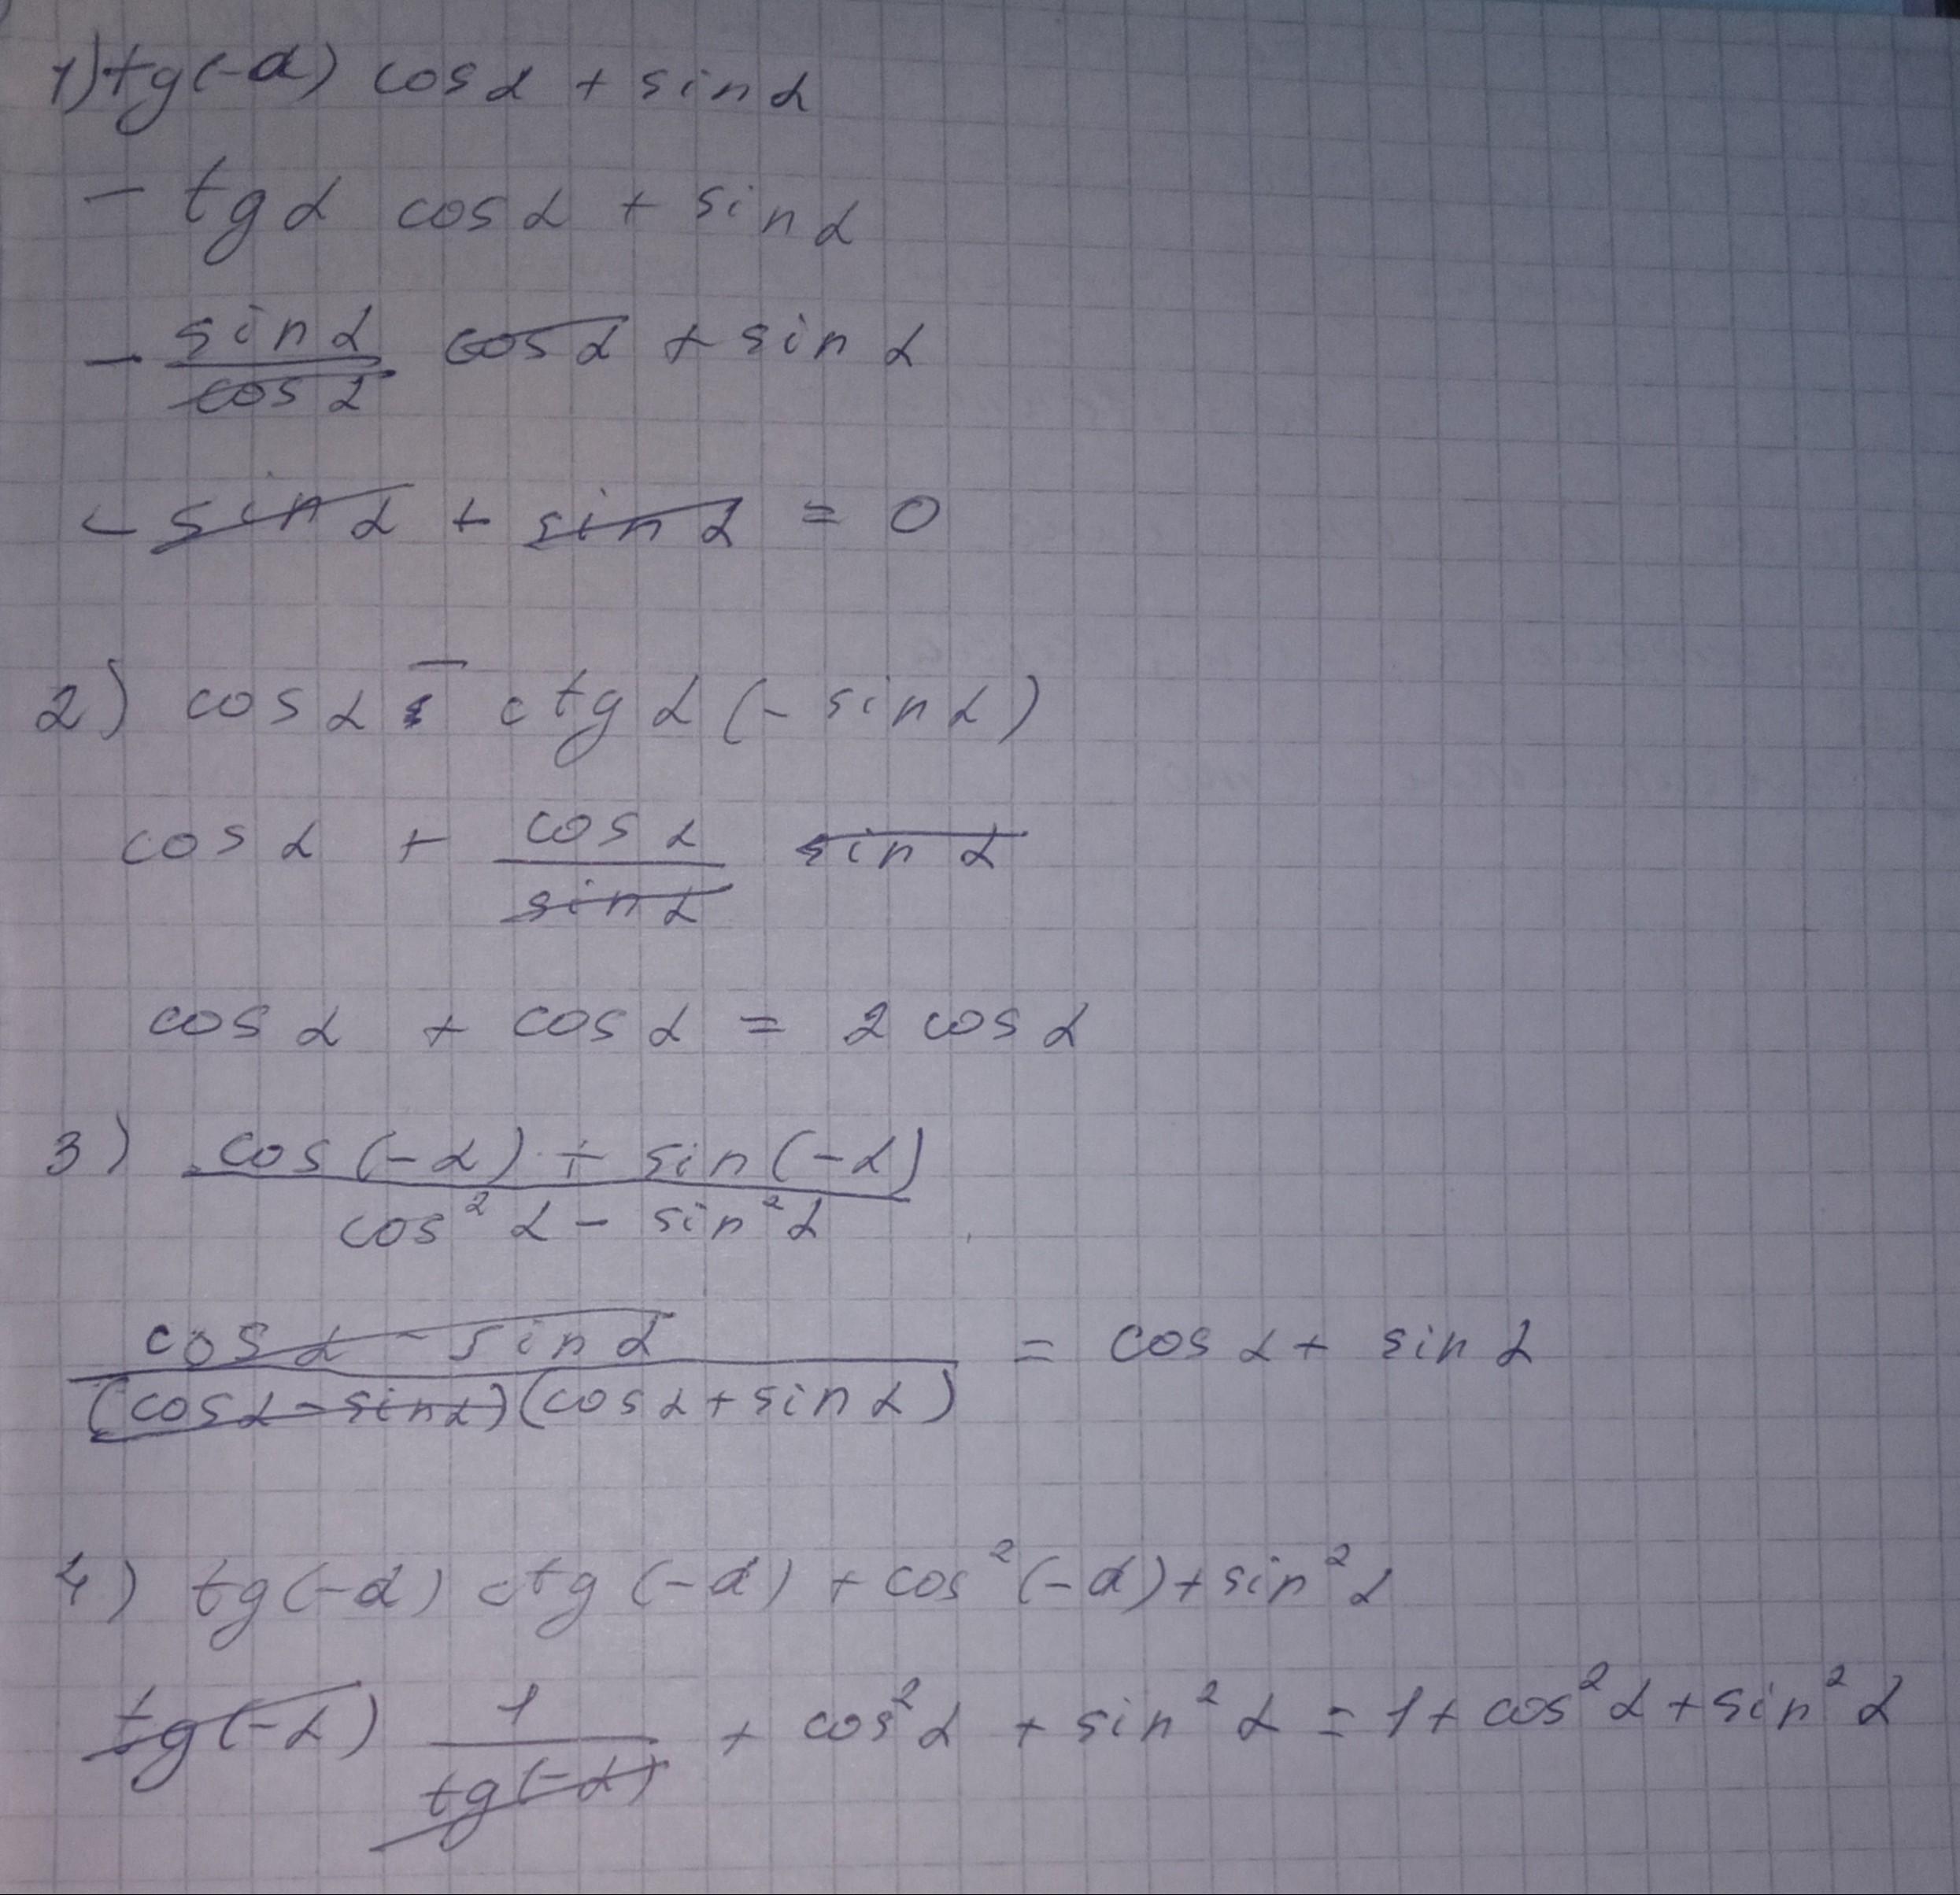 1) tg(-α) cos α + sin α
- tg α cos α + sin α
- sin α / cos α cos α + sin α
- sin α + sin α = 0
2) cos α - ctg α (- sin α)
cos α + cos α / sin α sin α
cos α + cos α = 2 cos α
3) cos (-α) + sin (-α)
cos² α - sin² α
cos α - sin α
(cos α - sin α)(cos α + sin α) = cos α + sin α
4) tg(-α) ctg (-α) + cos² (-α) + sin² α
tg(-α) 1 / tg(-α) + cos² α + sin² α = 1 + cos² α + sin² α